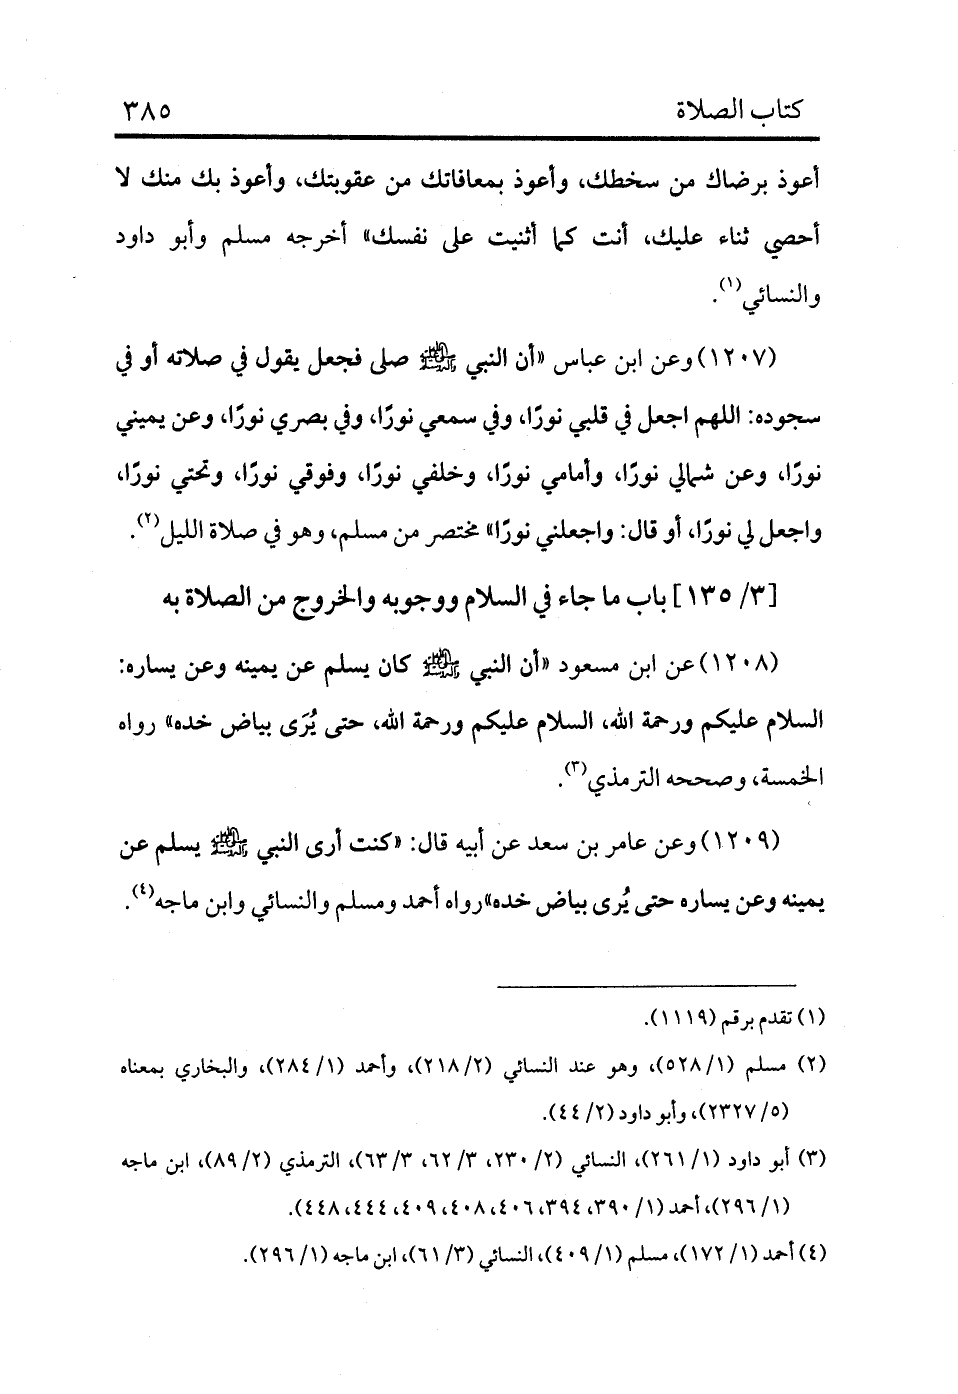 كتاب الصلاة ٣٨٥
أعوذ برضاك من سخطك، وأعوذ بمعافاتك من عقوبتك، وأعوذ بك منك لا
أحصي ثناء عليك، أنت كما أثنيت على نفسك» أخرجه مسلم وأبو داود
والنسائي(١).
(١٢٠٧) وعن ابن عباس «أن النبي ﷺ صلى فجعل يقول في صلاته أو في
سجوده: اللهم اجعل في قلبي نورًا، وفي سمعي نورًا، وفي بصري نورًا، وعن يميني
نورًا، وعن شمالي نورًا، وأمامي نورًا، وخلفي نورًا، وفوقي نورًا، وتحتي نورًا،
واجعل لي نورًا، أو قال: واجعلني نورًا» مختصر من مسلم، وهو في صلاة الليل(٢).
[٣/ ١٣٥] باب ما جاء في السلام ووجوبه والخروج من الصلاة به
(١٢٠٨) عن ابن مسعود «أن النبي ﷺ كان يسلم عن يمينه وعن يساره:
السلام عليكم ورحمة الله، السلام عليكم ورحمة الله، حتى يُرَى بياض خده» رواه
الخمسة، وصححه الترمذي(٣).
(١٢٠٩) وعن عامر بن سعد عن أبيه قال: «كنت أرى النبي ﷺ يسلم عن
يمينه وعن يساره حتى يُرى بياض خده» رواه أحمد ومسلم والنسائي وابن ماجه(٤).
(١) تقدم برقم (١١١٩).
(٢) مسلم (١/ ٥٢٨)، وهو عند النسائي (٢/ ٢١٨)، وأحمد (١/ ٢٨٤)، والبخاري بمعناه
(٥/ ٢٣٢٧)، وأبو داود (٢/ ٤٤).
(٣) أبو داود (١/ ٢٦١)، النسائي (٢/ ٢٣٠، ٣/ ٦٢، ٣/ ٦٣)، الترمذي (٢/ ٨٩)، ابن ماجه
(١/ ٢٩٦)، أحمد (١/ ٣٩٠، ٣٩٤، ٤٠٦، ٤٠٨، ٤٠٩، ٤٤٤، ٤٤٨).
(٤) أحمد (١/ ١٧٢)، مسلم (١/ ٤٠٩)، النسائي (٣/ ٦١)، ابن ماجه (١/ ٢٩٦).